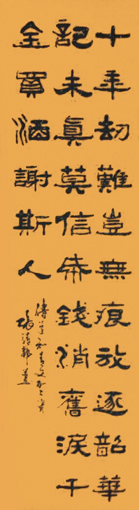 十年劫難豈無痕放逐韶華
記未真莫信帋錢消舊淚千
金買酒謝斯人